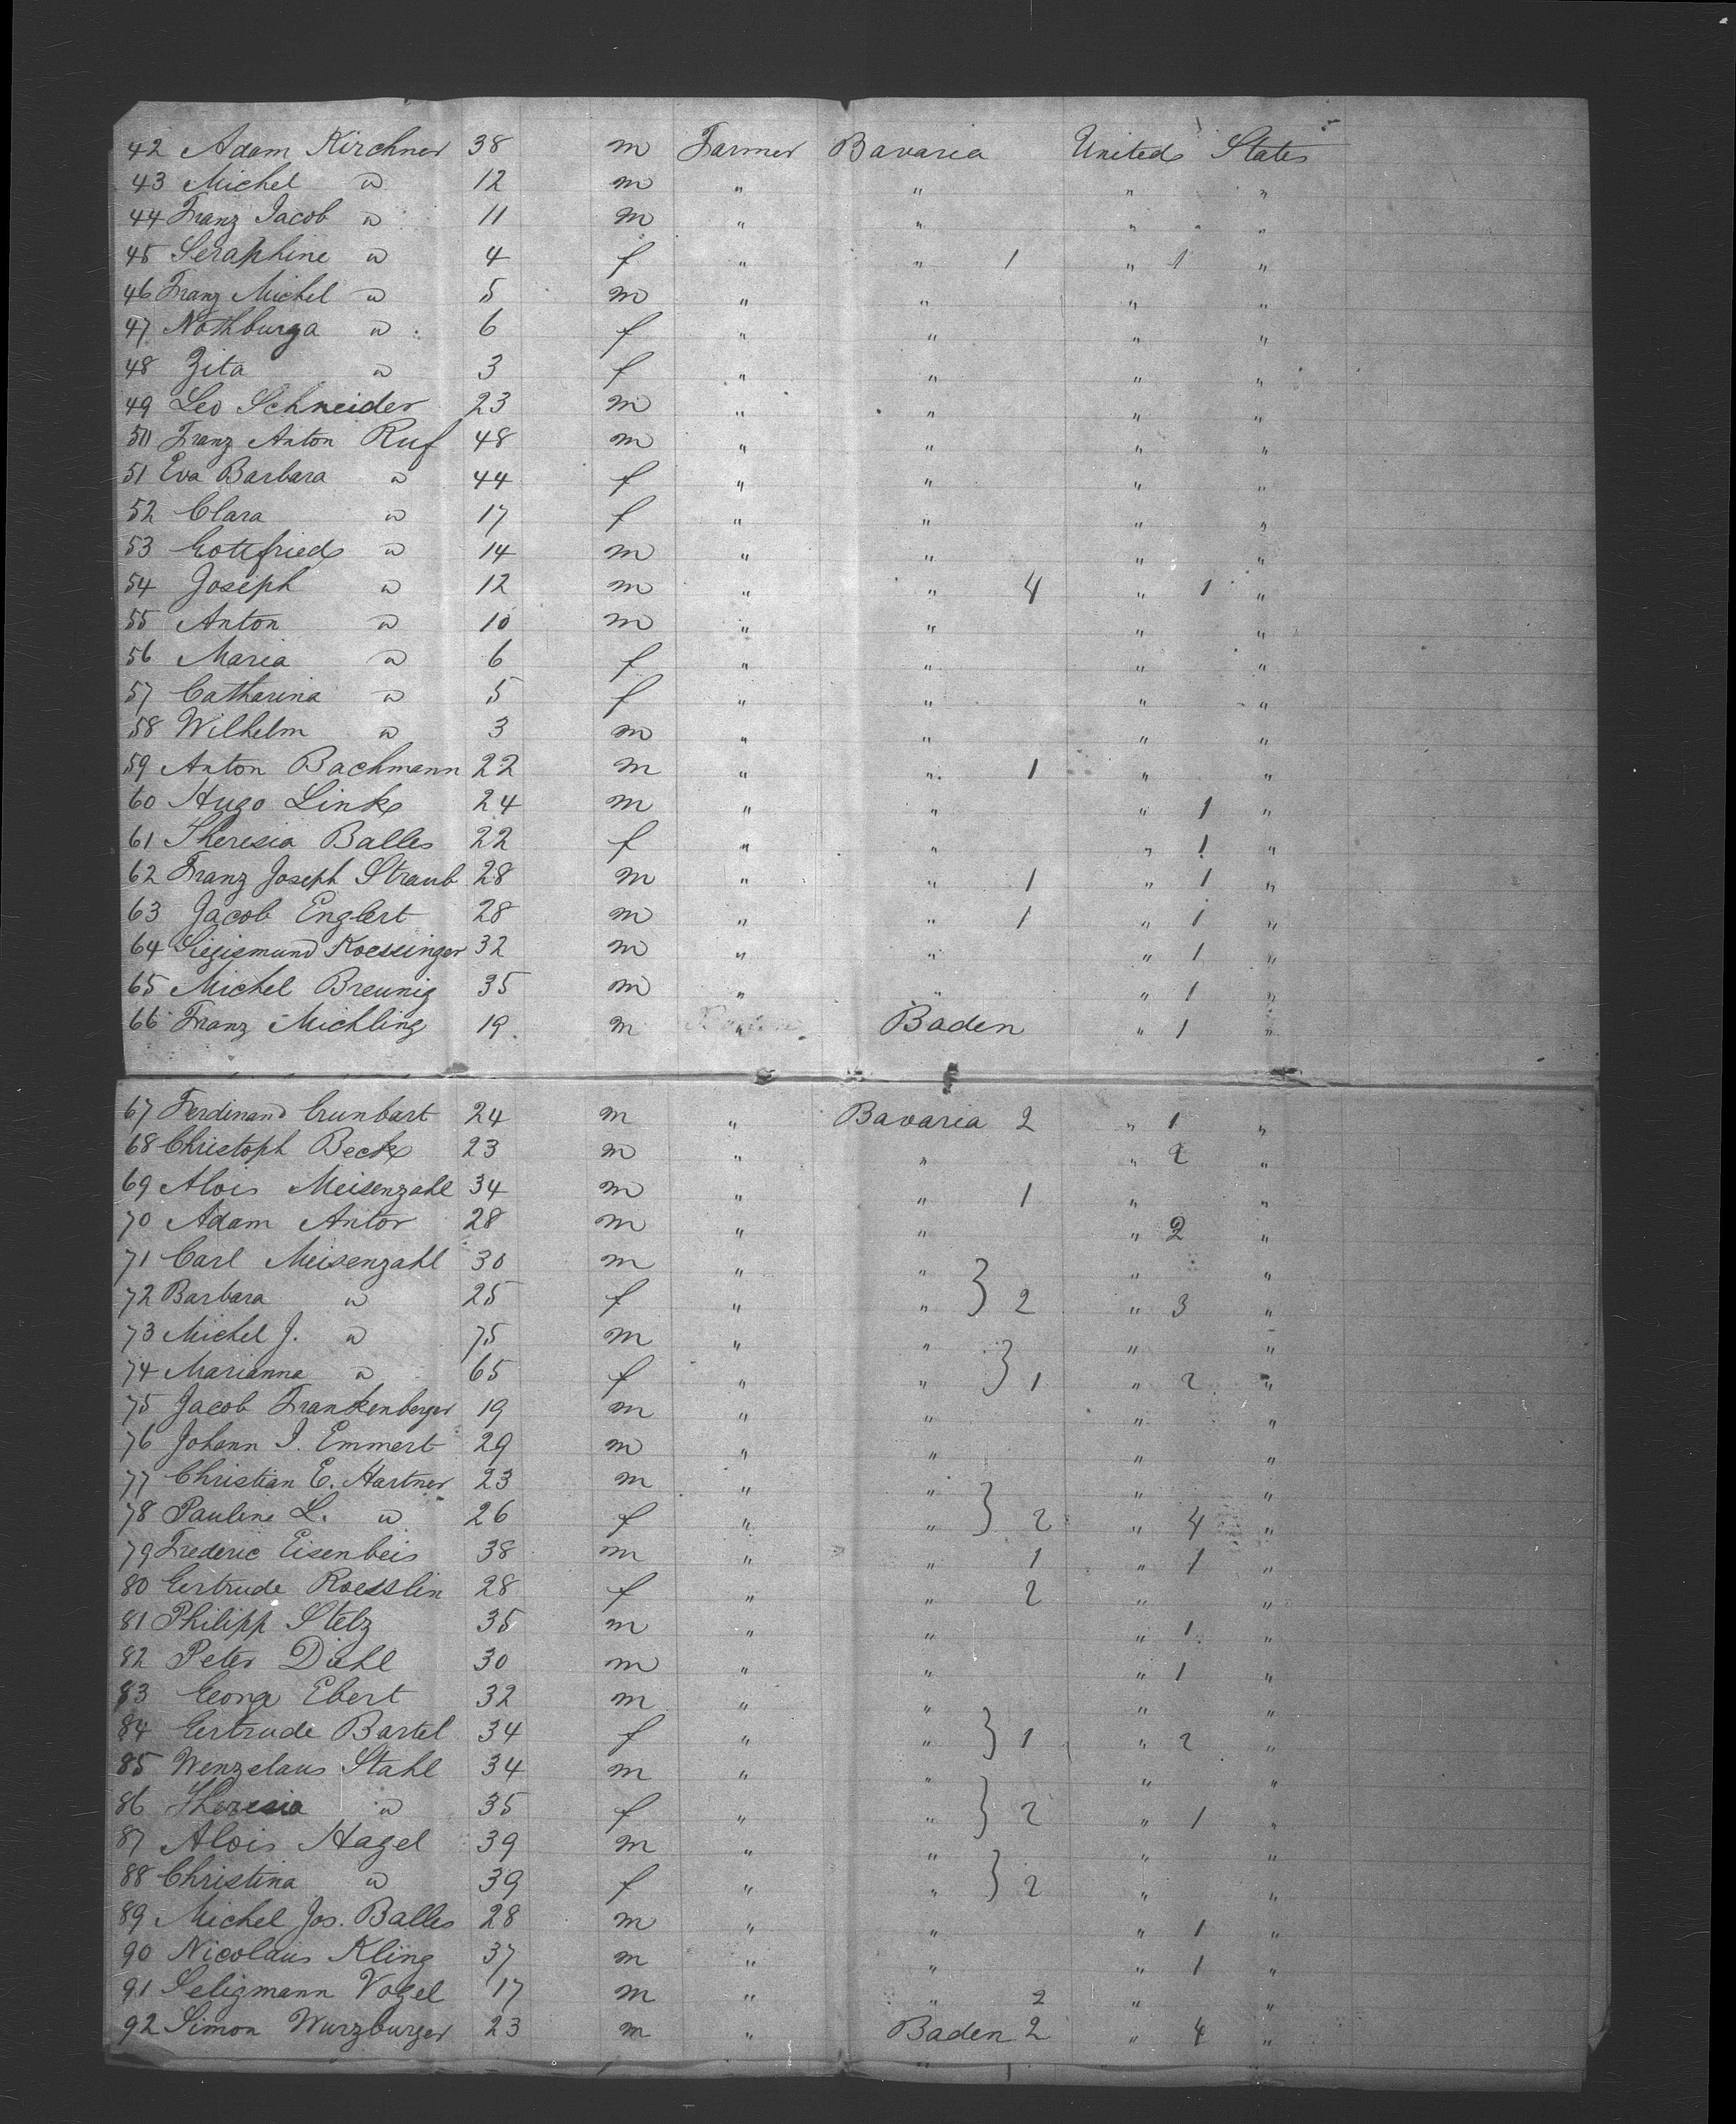 42 Adam Kirchner 38 m Farmer Bavaria United States
43 Michel " 12 m " " " "
44 Franz Jacob " 11 m " " " "
45 Seraphine " 4 f " " 1 " 1 "
46 Franz Michel " 5 m " " " "
47 Nothburga " 6 f " " " "
48 Zita " 3 f " " " "
49 Leo Schneider 23 m " " " "
50 Franz Anton Ruf 48 m " " " "
51 Eva Barbara " 44 f " " " "
52 Clara " 17 f " " " "
53 Gottfried " 14 m " " " "
54 Joseph " 12 m " " 4 " 1 "
55 Anton " 10 m " " " "
56 Maria " 6 f " " " "
57 Catharina " 5 f " " " "
58 Wilhelm " 3 m " " " "
59 Anton Bachmann 22 m " " 1 " "
60 Hugo Link 24 m " " " 1 "
61 Theresia Balles 22 f " " " 1 "
62 Franz Joseph Straub 28 m " " 1 " 1 "
63 Jacob Englert 28 m " " 1 " 1 "
64 Sigismund Koessinger 32 m " " " 1 "
65 Michel Breunig 35 m " " " 1 "
66 Franz Michling 19 m " Baden " 1 "
67 Ferdinand Grunbart 24 m " Bavaria 2 " 1 "
68 Christoph Beck 23 m " " " 2 "
69 Alois Meisenzahl 34 m " " 1 " "
70 Adam Antor 28 m " " " 2 "
71 Carl Meisenzahl 30 m " " " "
72 Barbara " 25 f " " } 2 " 3 "
73 Michel J. " 75 m " " " "
74 Marianna " 65 f " " } 1 " 2 "
75 Jacob Frankenberger 19 m " " " "
76 Johann I. Emmert 29 m " " " "
77 Christian E. Hartner 23 m " " " "
78 Pauline L. " 26 f " " } 2 " 4 "
79 Frederic Eisenbeis 38 m " " 1 " 1 "
80 Gertrude Roesslin 28 f " " 2 " "
81 Philipp Stelz 35 m " " " 1 "
82 Peter Diehl 30 m " " " 1 "
83 Georg Ebert 32 m " " " "
84 Gertrude Bartel 34 f " " } 1 " 2 "
85 Wenzelaus Stahl 34 m " " " "
86 Theresia " 35 f " " } 2 " 1 "
87 Alois Hagel 39 m " " " "
88 Christina " 39 f " " } 2 " "
89 Michel Jos. Balles 28 m " " " 1 "
90 Nicolaus Kling 37 m " " " 1 "
91 Seligmann Vogel 17 m " " 2 " "
92 Simon Wurzburger 23 m " Baden 2 " 4 "